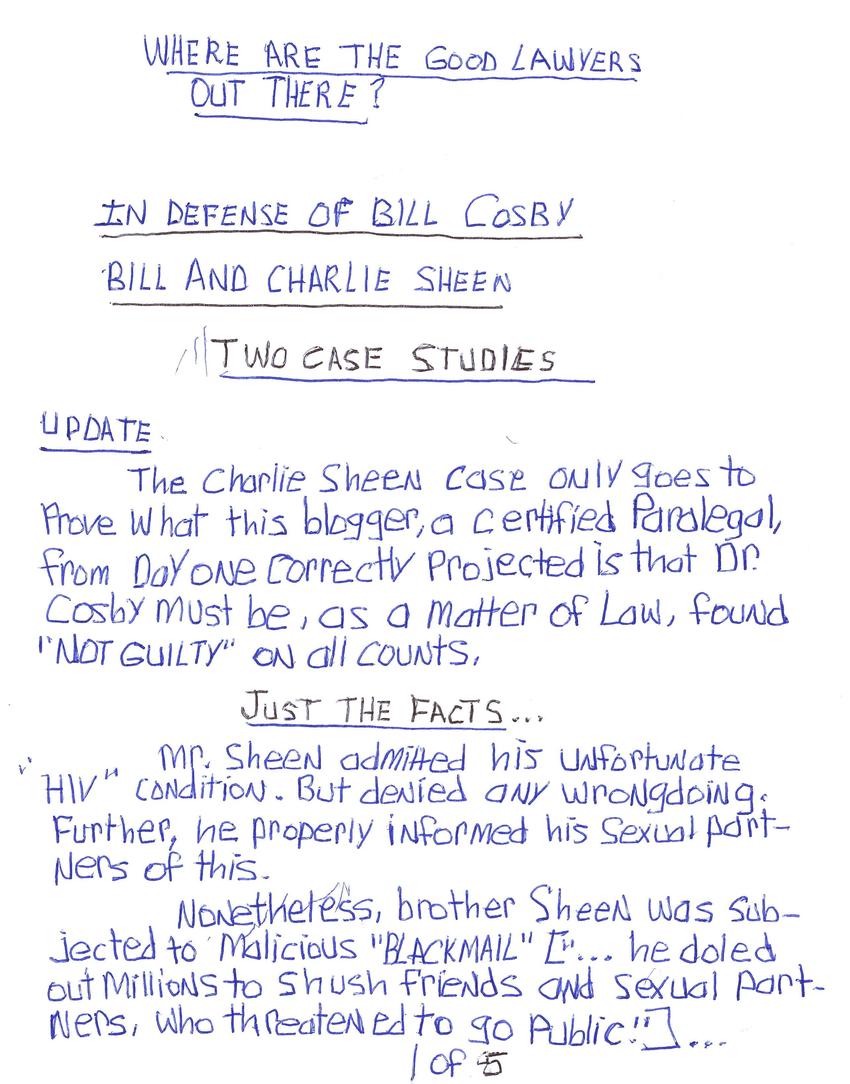 WHERE ARE THE GOOD LAWYERS
OUT THERE?
IN DEFENSE OF BILL COSBY
BILL AND CHARLIE SHEEN
TWO CASE STUDIES
UPDATE
The Charlie Sheen case only goes to
Prove What this blogger, a certified Paralegal,
from Day one Correctly Projected is that Dr.
Cosby must be, as a matter of Law, found
"NOT GUILTY" on all counts.
JUST THE FACTS...
Mr. Sheen admitted his unfortunate
"HIV" condition. But denied any wrongdoing.
Further, he properly informed his sexual part-
ners of this.
Nonetheless, brother Sheen was sub-
jected to Malicious "BLACKMAIL" ["... he doled
out Millions to shush friends and sexual part-
ners, who threatened to go Public!"]...
1 of 5